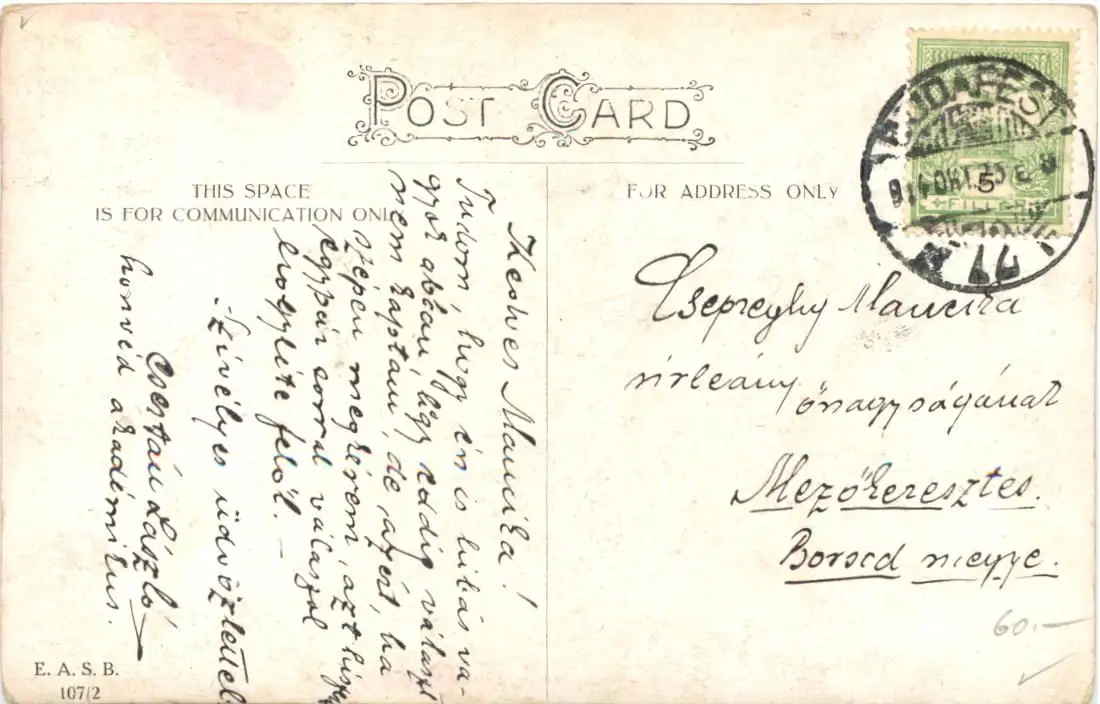 POST CARD
THIS SPACE
IS FOR COMMUNICATION ONLY
FOR ADDRESS ONLY
BUDAPEST
914 OKT.
5
FILLÉR
Kedves Mancika!
Tudom, hogy én is hibás va-
gyok abban, hogy eddig választ
nem kaptam, de azért, ha
szépen megkérem, azt hiszem
egypár sorral válaszol
hogyléte felől. —
Szívélyes üdvözlettel
Csertán László
honvéd akadémikus.
Csepreghy Mancika
úrleány
őnagyságának
Mezőkeresztes.
Borsod megye.
60.—
E. A. S. B.
107/2